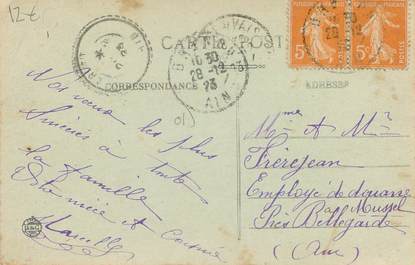 12€
CARTE POSTALE
CORRESPONDANCE
ADRESSE
10 30
28-12
23
AIN
5
5
01
Nos vœux les plus
sincères à toute
la famille
Sa nièce et Cousine
Marcelle
Mme et Mr
Frèrejean
Employé de douane
à Mussel
Près Bellegarde
(Ain)